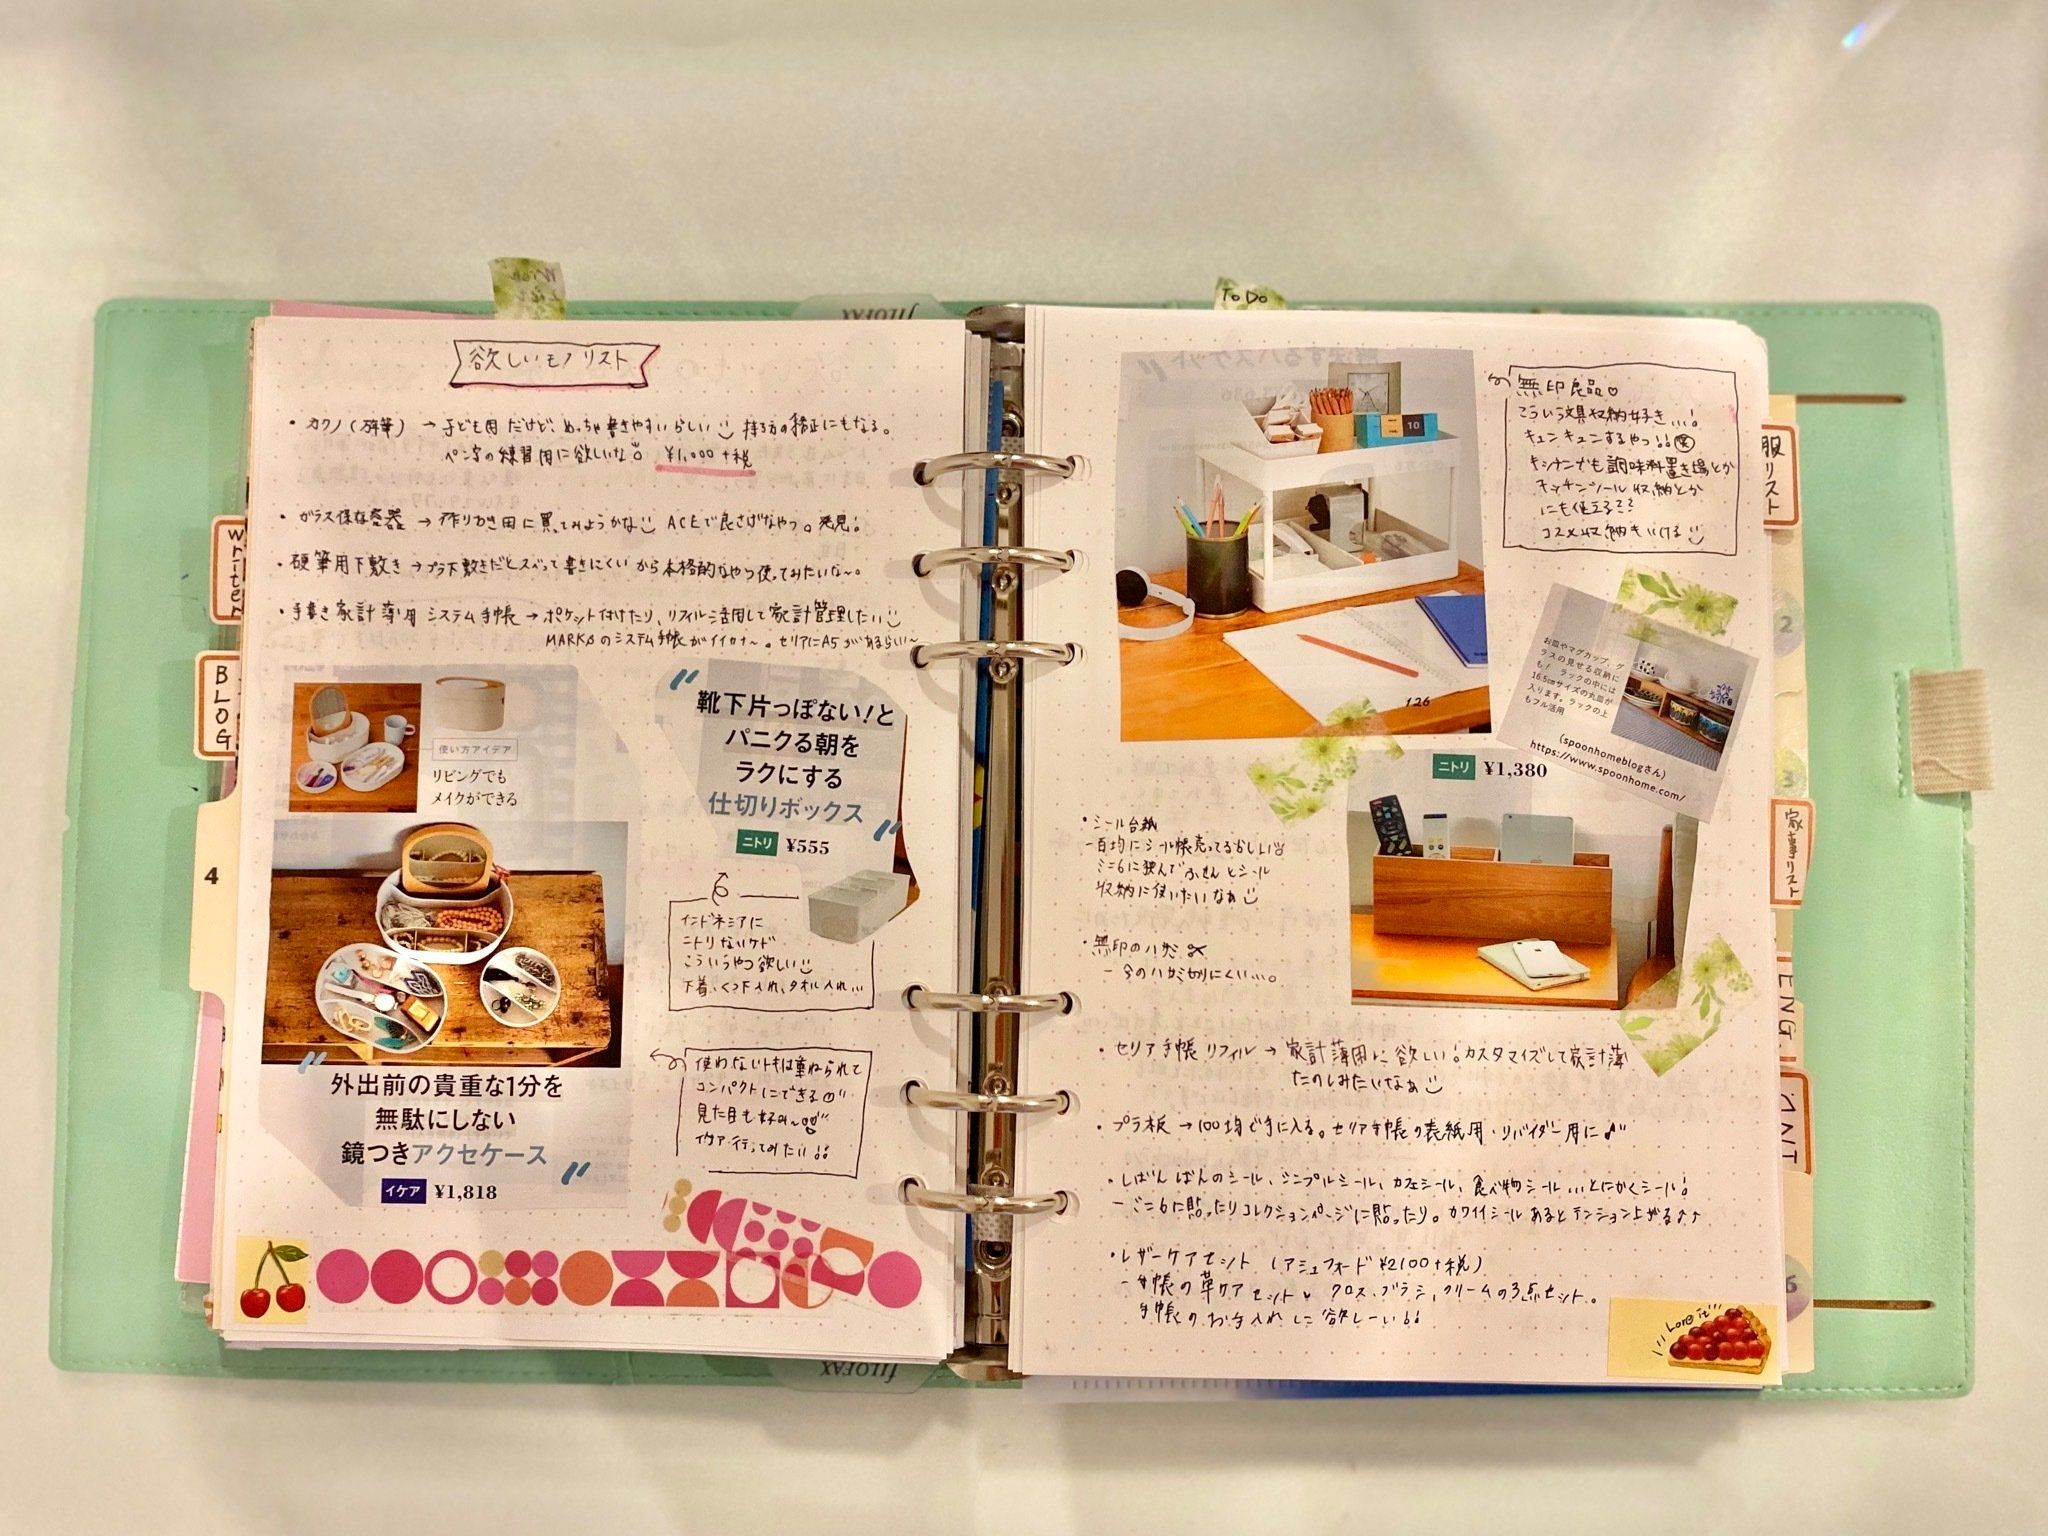 Wish
List
ToDo
FILOFAX
欲しいモノリスト
・カクノ(万年筆) → 子ども用だけど、めっちゃ書きやすいらしい 持ち方の矯正にもなる。
ペン字の練習用に欲しいな ¥1,000+税
・ガラス保存容器 → 作りおき用に買ってみようかな ACEで良さげなやつ。発見!
・硬筆用下敷き → プラ下敷きだとスベって書きにくいから本格的なやつ使ってみたいな〜。
・手書き家計簿用システム手帳 → ポケット付けたり、リフィル活用して家計管理したい
MARK'Sのシステム手帳がイイカナ〜。セリアにA5があるらしい〜
使い方アイデア
リビングでも
メイクができる
靴下片っぽない!と
パニクる朝を
ラクにする
仕切りボックス
ニトリ ¥555
インドネシアに
ニトリないケド
こういうやつ欲しい
下着、くつ下入れ、タオル入れ…
外出前の貴重な1分を
無駄にしない
鏡つきアクセケース
イケア ¥1,818
使わないトキは重ねられて
コンパクトにできる
見た目も好み〜
イケア行ってみたい!!
writer
BLOG
4
無印良品♡
こういう文具収納好き…!
キュンキュンするやつ!!笑
キッチンでも調味料置き場とか
キッチンツール収納とか
にも使える??
コスメ収納もいける
10
126
お皿やマグカップ、グ
ラスの見せる収納に
も! ラックの中には
16.5cmサイズの丸皿が
入ります。ラックの上
もフル活用
(spoonhomeblogさん)
https://www.spoonhome.com/
ニトリ ¥1,380
・シール台紙
−百均にシール帳売ってるらしい
ミニ6に挟んでふせんとシール
収納に使いたいなぁ
・無印のハサミ
− 今のハサミ切りにくい…。
・セリア手帳リフィル → 家計簿用に欲しい!カスタマイズして家計簿
たのしみたいなぁ
・プラ板 → 100均で手に入る。セリア手帳の表紙用・リバイダー用に♪
・しばんばんのシール、シンプルシール、カフェシール、食べ物シール…とにかくシール!
− ミニ6に貼ったりコレクションページに貼ったり。カワイイシールあるとテンション上がる♪♪
・レザーケアセット (アシュフォード ¥2100+税)
− 手帳の革ケアセット クロス、ブラシ、クリームの3点セット。
手帳のお手入れに欲しーい!!
Love it
服リスト
2
3
家事リスト
ENG
6
FILOFAX